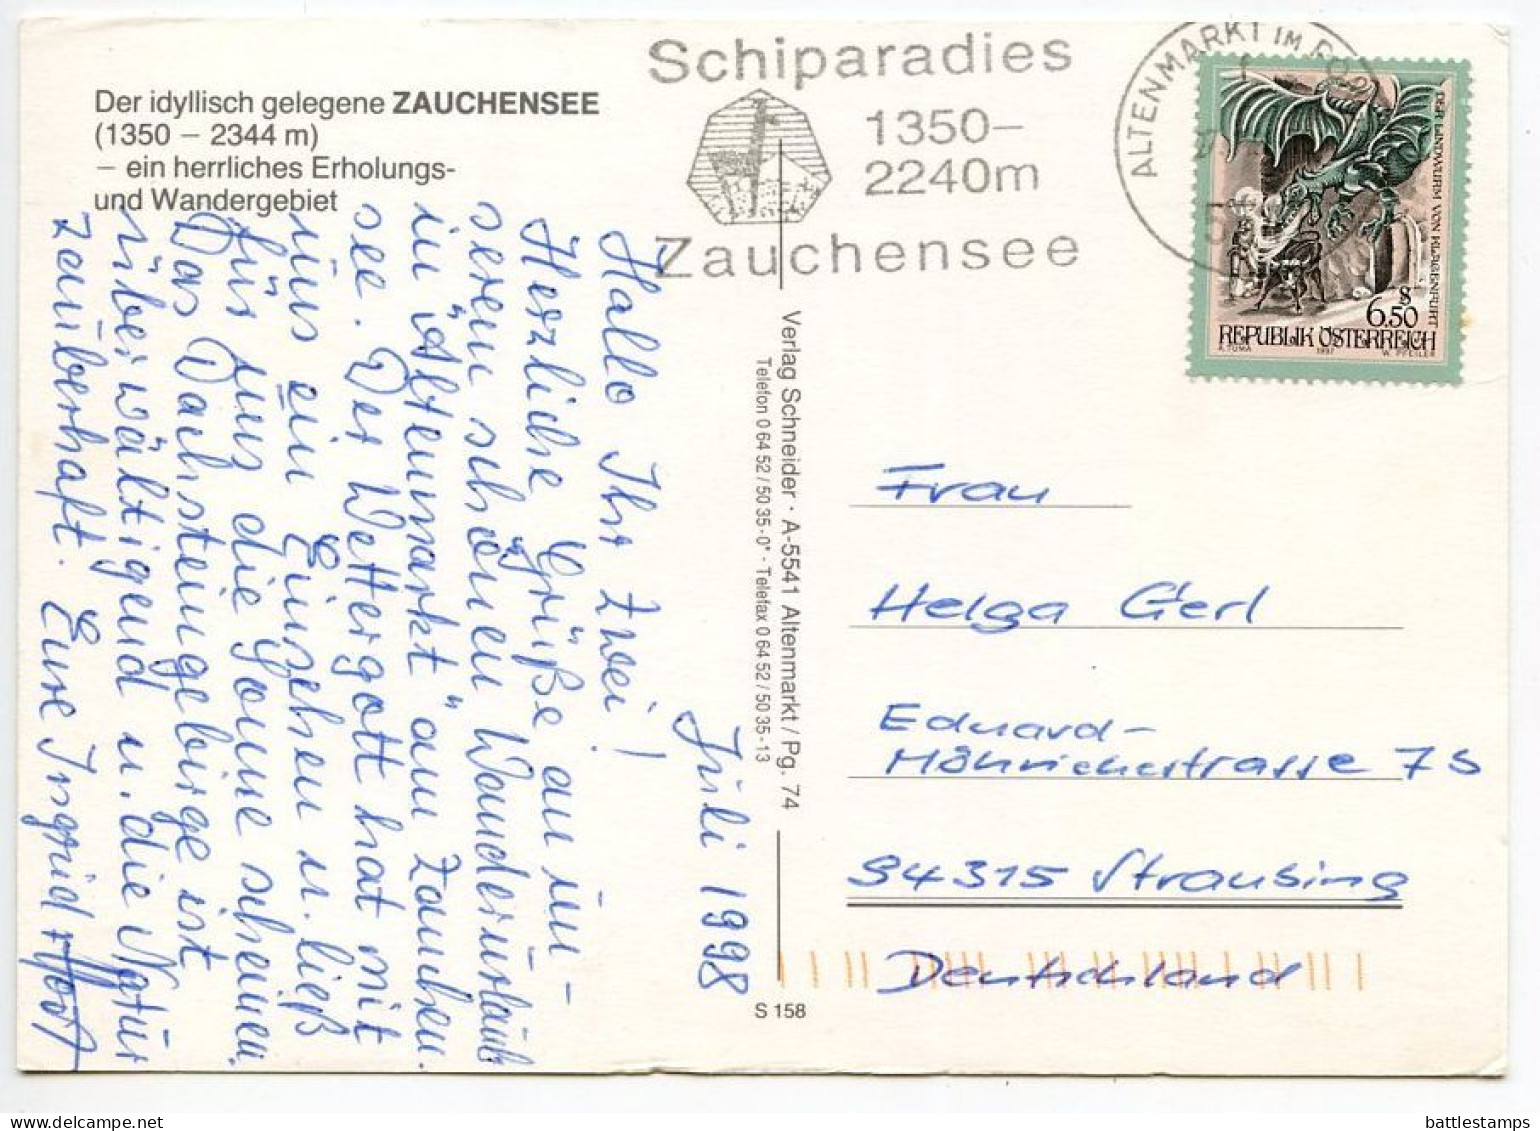 Der idyllisch gelegene ZAUCHENSEE
(1350 – 2344 m)
– ein herrliches Erholungs-
und Wandergebiet
Schiparadies
1350–
2240m
Zauchensee
ALTENMARKT IM PO
DER LINDWURM VON KLAGENFURT
S
6,50
REPUBLIK ÖSTERREICH
A. TUMA 1997 W. PFEILER
Juli 1998
Hallo Ihr zwei!
Herzliche Grüße aus un-
serem schönen Wanderurlaub
in "Altenmarkt" am Zauchen-
see. Der Wettergott hat mit
uns ein Einsehen u. ließ
für uns die Sonne scheinen.
Das Dachsteingebirge ist
überwältigend u. die Natur
zauberhaft. Eure Ingrid +
Verlag Schneider · A-5541 Altenmarkt / Pg. 74
Telefon 0 64 52 / 50 35-0* - Telefax 0 64 52 / 50 35-13
S 158
Frau
Helga Gerl
Eduard-
strasse 75
94315 Straubing
Deutschland
battlestamps